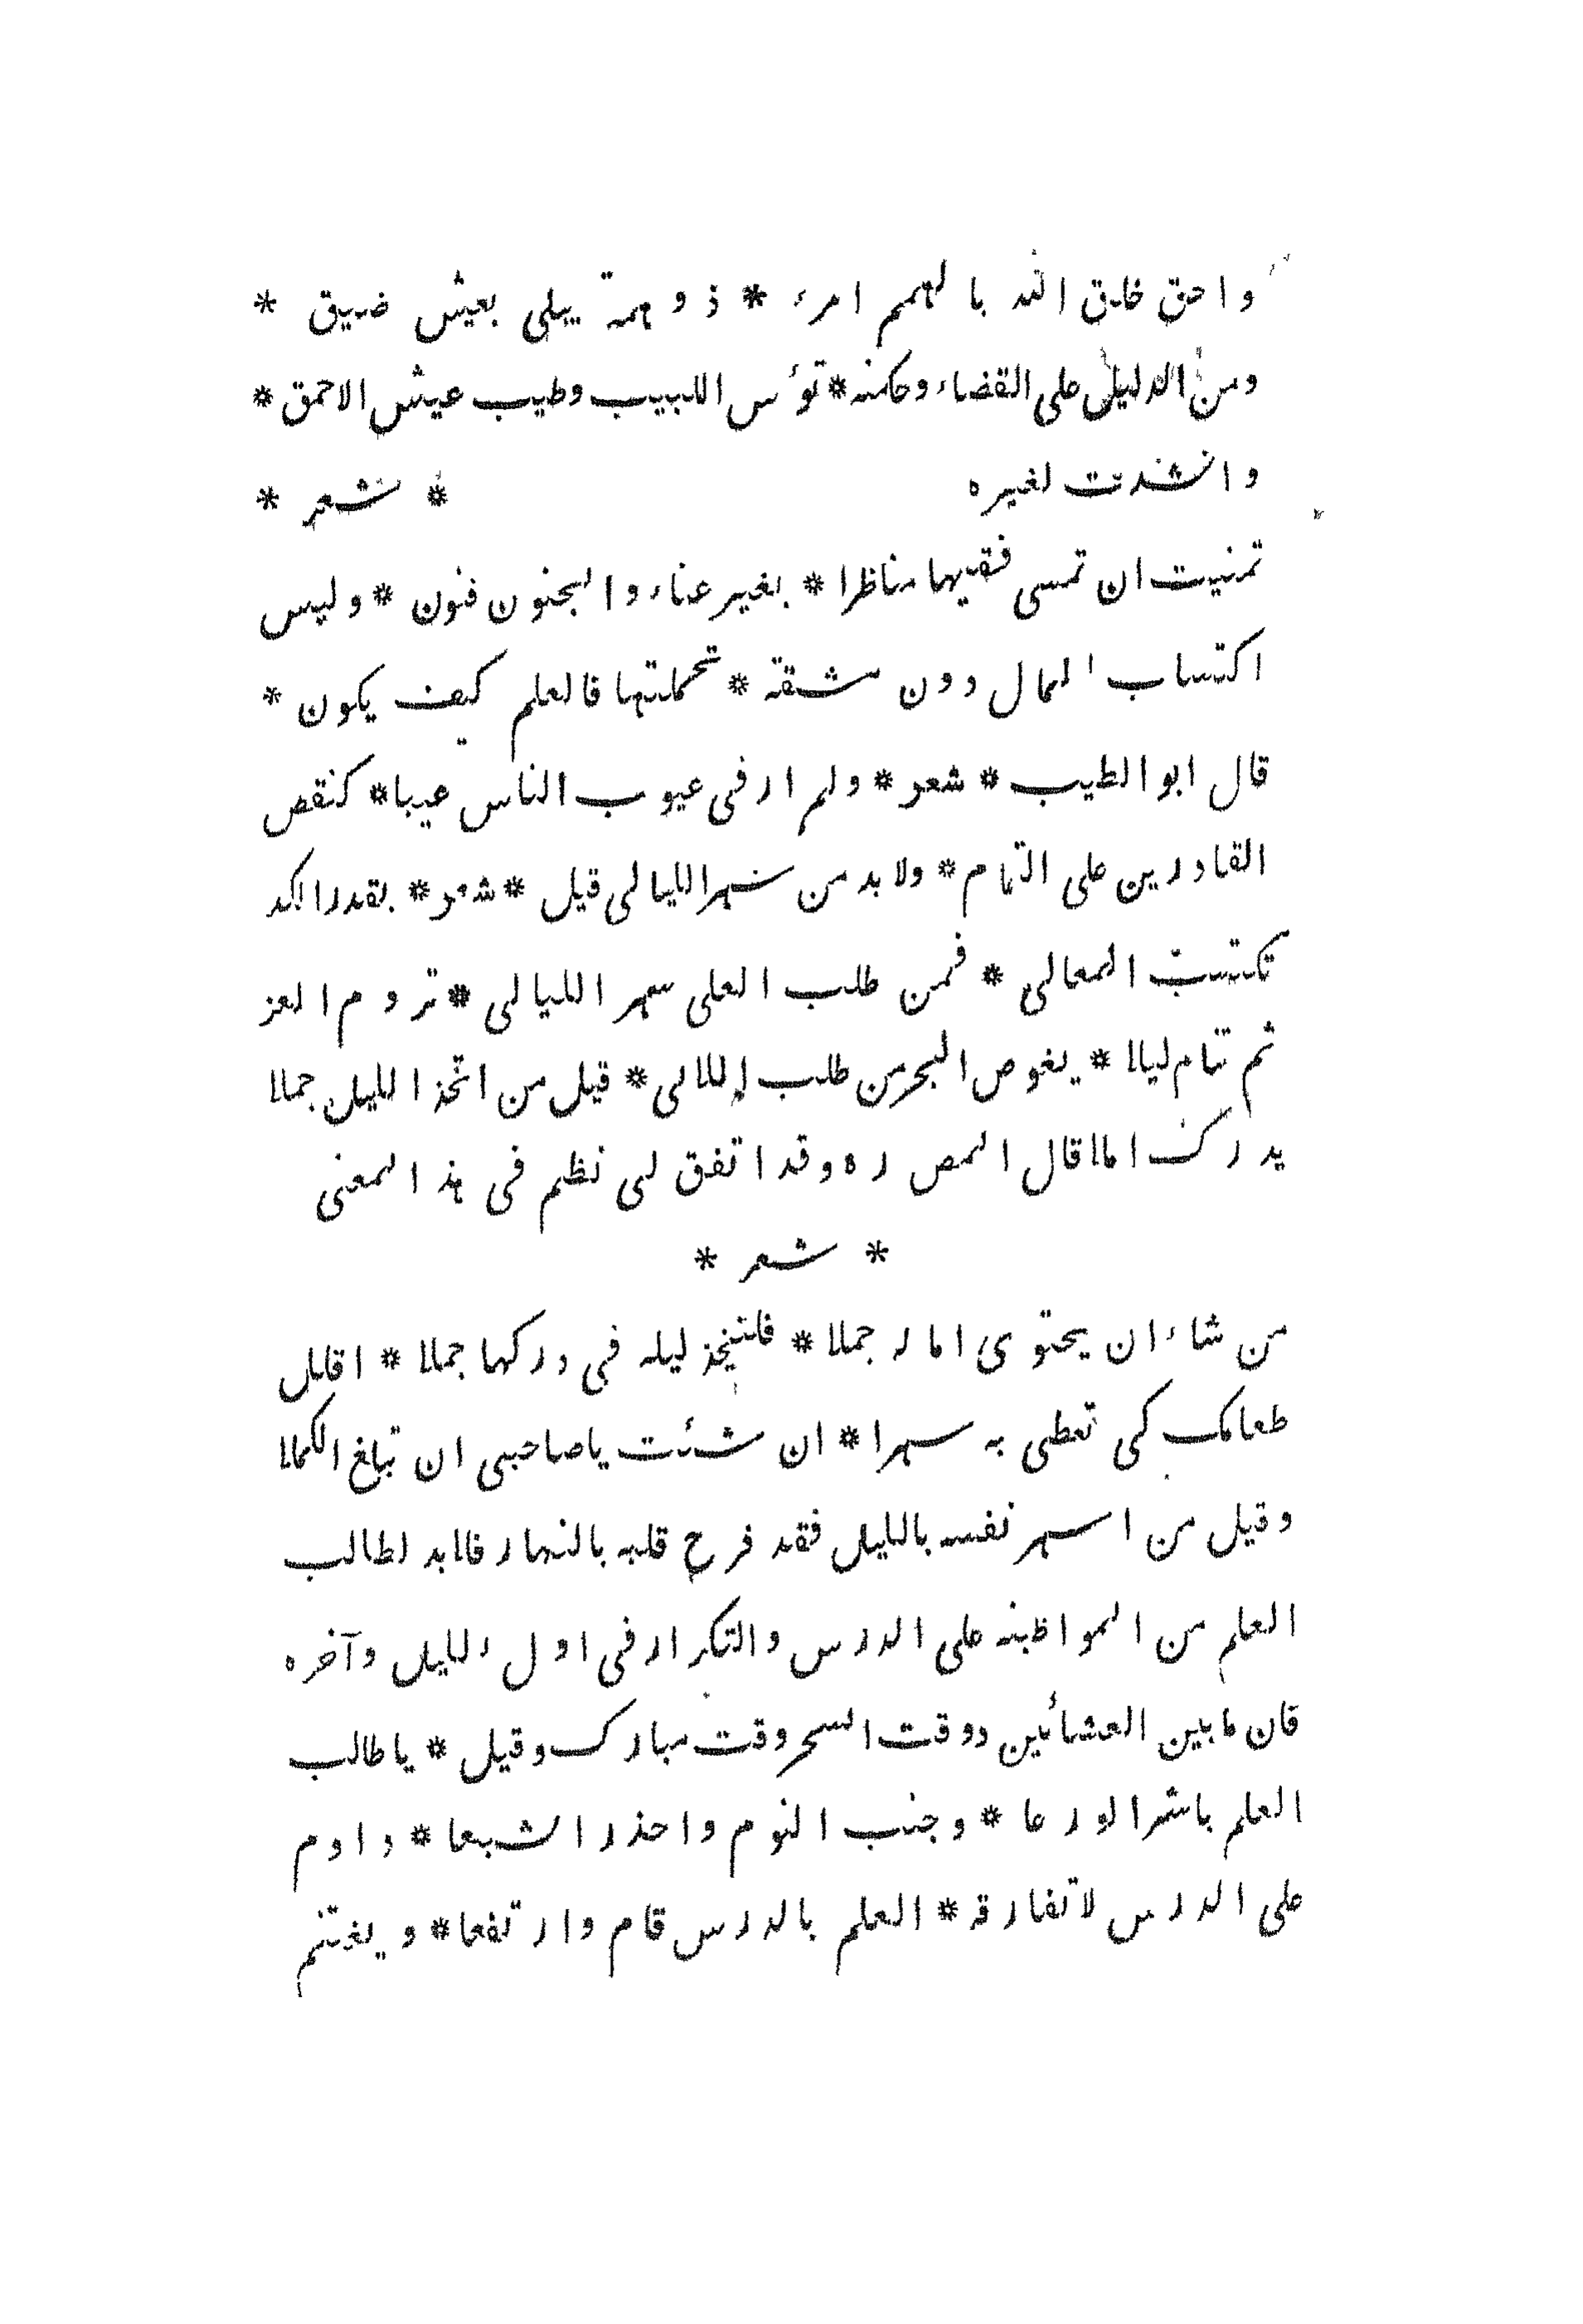 واحق خلق الله بالهمم امرء * ذو همة يبلى بعيش ضيق *
ومن الدليل على القضاء وحكمه * بؤس اللبيب وطيب عيش الاحمق *
وانشدت لغيره * شعر *
تمنيت ان تمسى فقيها مناظرا * بغير عناء والجنون فنون * وليس
اكتساب المال دون مشقة * تحملتها فالعلم كيف يكون *
قال ابو الطيب * شعر * ولم ار فى عيوب الناس عيبا * كنقص
القادرين على التمام * ولابد من سهر الليالى قيل * شعر * بقدر الكد
تكتسب المعالى * فمن طلب العلى سهر الليالى * تروم العز
ثم تنام ليلا * يغوص البحر من طلب اللالى * قيل من اتخذ الليل جملا
يدرك املا قال المص ره وقد اتفق لى نظم فى هذا المعنى
* شعر *
من شاء ان يحتوى اماله جملا * فليتخذ ليله فى دركها جملا * اقلل
طعامك كى تعطى به سهرا * ان شئت ياصاحبى ان تبلغ الكملا
وقيل من اسهر نفسه بالليل فقد فرح قلبه بالنهار فلابد لطالب
العلم من المواظبة على الدرس والتكرار فى اول الليل وآخره
فان مابين العشائين ووقت السحر وقت مبارك وقيل * ياطالب
العلم باشر الورعا * وجنب النوم واحذر الشبعا * داوم
على الدرس لاتفارقه * العلم بالدرس قام وارتفعا * ويغتنم